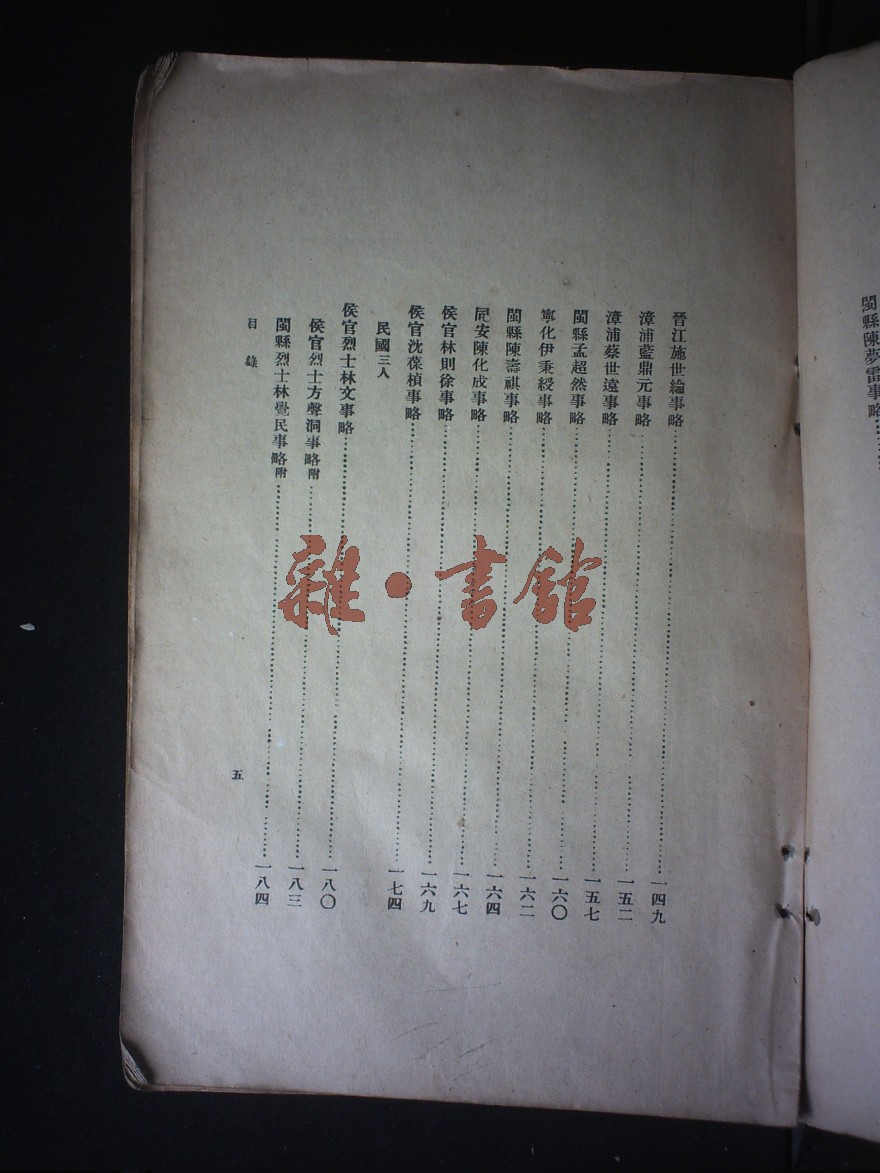 閩縣陳夢雷事略
晉江施世綸事略……一四九
漳浦藍鼎元事略……一五二
漳浦蔡世遠事略……一五七
閩縣孟超然事略……一六〇
寧化伊秉綬事略……一六二
閩縣陳壽祺事略……一六四
同安陳化成事略……一六七
侯官林則徐事略……一六九
侯官沈葆楨事略……一七四
民國三人
侯官烈士林文事略……一八〇
侯官烈士方聲洞事略附……一八三
閩縣烈士林覺民事略附……一八四
目錄
五
雜·書館